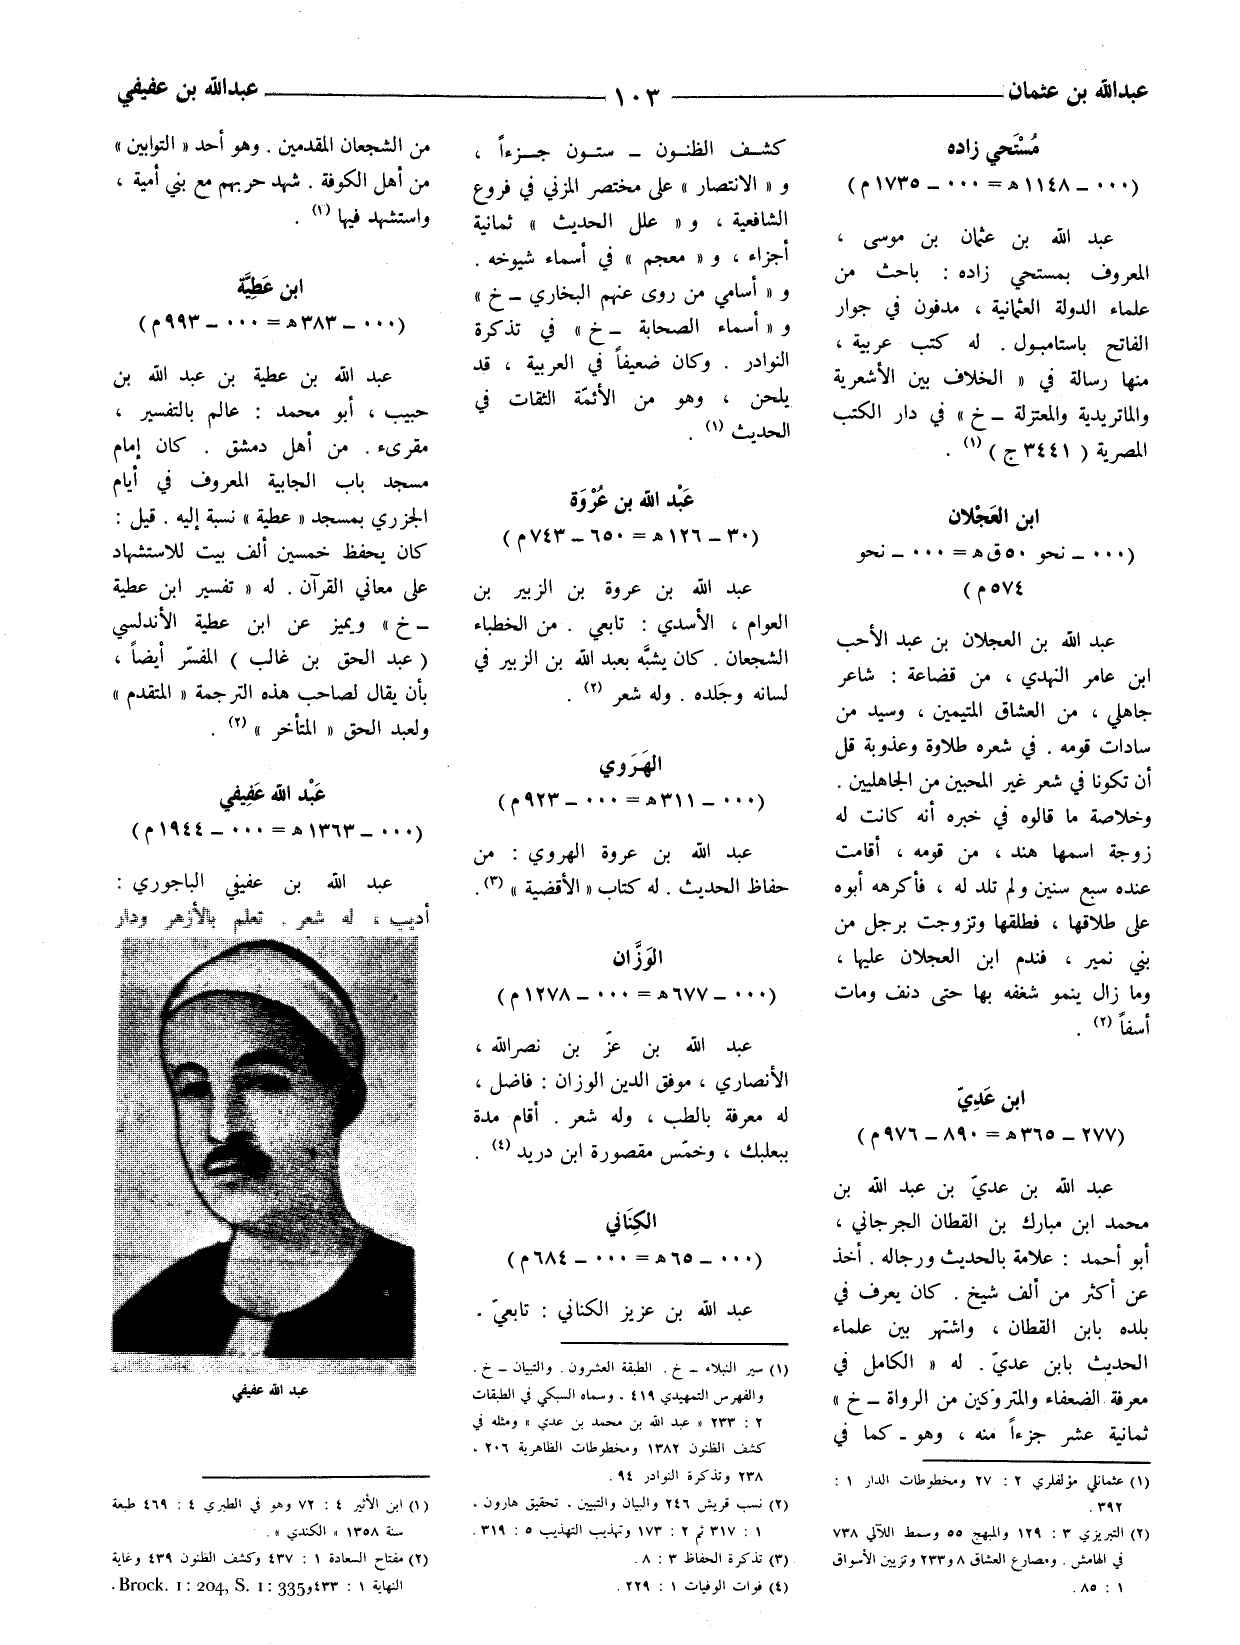 عبدالله بن عثمان ــــ ١٠٣ ــــ عبدالله بن عفيفي
مُسْتَحي زاده
(٠٠٠ ــ ١١٤٨ هـ = ٠٠٠ ــ ١٧٣٥ م)
عبد الله بن عثمان بن موسى ،
المعروف بمستحي زاده : باحث من
علماء الدولة العثمانية ، مدفون في جوار
الفاتح باستامبول . له كتب عربية ،
منها رسالة في « الخلاف بين الأشعرية
والماتريدية والمعتزلة ــ خ » في دار الكتب
المصرية ( ٣٤٤١ ج ) (١) .
ابن العَجْلان
(٠٠٠ ــ نحو ٥٠ ق هـ = ٠٠٠ ــ نحو
٥٧٤ م )
عبد الله بن العجلان بن عبد الأحب
ابن عامر النهدي ، من قضاعة : شاعر
جاهلي ، من العشاق المتيمين ، وسيد من
سادات قومه . في شعره طلاوة وعذوبة قل
أن تكونا في شعر غير المحبين من الجاهليين .
وخلاصة ما قالوه في خبره أنه كانت له
زوجة اسمها هند ، من قومه ، أقامت
عنده سبع سنين ولم تلد له ، فأكرهه أبوه
على طلاقها ، فطلقها وتزوجت برجل من
بني نمير ، فندم ابن العجلان عليها ،
وما زال ينمو شغفه بها حتى دنف ومات
أسفاً (٢) .
ابن عَدِيّ
(٢٧٧ ــ ٣٦٥ هـ = ٨٩٠ ــ ٩٧٦ م)
عبد الله بن عديّ بن عبد الله بن
محمد ابن مبارك بن القطان الجرجاني ،
أبو أحمد : علامة بالحديث ورجاله . أخذ
عن أكثر من ألف شيخ . كان يعرف في
بلده بابن القطان ، واشتهر بين علماء
الحديث بابن عديّ . له « الكامل في
معرفة الضعفاء والمتروكين من الرواة ــ خ »
ثمانية عشر جزءاً منه ، وهو ــ كما في
(١) عثمانلي مؤلفلري ٢ : ٢٧ ومخطوطات الدار ١ :
٣٩٢ .
(٢) التبريزي ٣ : ١٢٩ والمبهج ٥٥ وسمط اللآلي ٧٣٨
في الهامش . ومصارع العشاق ٨ و٢٣٣ وتزيين الأسواق
١ : ٨٥ .
كشــف الظنــون ــ ستــون جــزءاً ،
و « الانتصار » على مختصر المزني في فروع
الشافعية ، و « علل الحديث » ثمانية
أجزاء ، و « معجم » في أسماء شيوخه .
و « أسامي من روى عنهم البخاري ــ خ »
و « أسماء الصحابة ــ خ » في تذكرة
النوادر . وكان ضعيفاً في العربية ، قد
يلحن ، وهو من الأئمّة الثقات في
الحديث (١) .
عَبْد الله بن عُرْوَة
(٣٠ ــ ١٢٦ هـ = ٦٥٠ ــ ٧٤٣ م)
عبد الله بن عروة بن الزبير بن
العوام ، الأسدي : تابعي . من الخطباء
الشجعان . كان يشبَّه بعبد الله بن الزبير في
لسانه وجَلده . وله شعر (٢) .
الهَرَوي
(٠٠٠ ــ ٣١١ هـ = ٠٠٠ ــ ٩٢٣ م)
عبد الله بن عروة الهروي : من
حفاظ الحديث . له كتاب « الأقضية » (٣) .
الوَزَّان
(٠٠٠ ــ ٦٧٧ هـ = ٠٠٠ ــ ١٢٧٨ م)
عبد الله بن عزّ بن نصرالله ،
الأنصاري ، موفق الدين الوزان : فاضل ،
له معرفة بالطب ، وله شعر . أقام مدة
ببعلبك ، وخمّس مقصورة ابن دريد (٤) .
الكِنَاني
(٠٠٠ ــ ٦٥ هـ = ٠٠٠ ــ ٦٨٤ م)
عبد الله بن عزيز الكناني : تابعيّ .
(١) سير النبلاء ــ خ . الطبقة العشرون . والتبيان ــ خ .
والفهرس التمهيدي ٤١٩ . وسماه السبكي في الطبقات
٢ : ٢٣٣ « عبد الله بن محمد بن عدي » ومثله في
كشف الظنون ١٣٨٢ ومخطوطات الظاهرية ٢٠٦ ،
٢٣٨ وتذكرة النوادر ٩٤ .
(٢) نسب قريش ٢٤٦ والبيان والتبيين ، تحقيق هارون ،
١ : ٣١٧ ثم ٢ : ١٧٣ وتهذيب التهذيب ٥ : ٣١٩ .
(٣) تذكرة الحفاظ ٣ : ٨ .
(٤) فوات الوفيات ١ : ٢٢٩ .
من الشجعان المقدمين . وهو أحد « التوابين »
من أهل الكوفة . شهد حربهم مع بني أمية ،
واستشهد فيها (١) .
ابن عَطِيَّة
(٠٠٠ ــ ٣٨٣ هـ = ٠٠٠ ــ ٩٩٣ م)
عبد الله بن عطية بن عبد الله بن
حبيب ، أبو محمد : عالم بالتفسير ،
مقرىء . من أهل دمشق . كان إمام
مسجد باب الجابية المعروف في أيام
الجزري بمسجد « عطية » نسبة إليه . قيل :
كان يحفظ خمسين ألف بيت للاستشهاد
على معاني القرآن . له « تفسير ابن عطية
ــ خ » ويميز عن ابن عطية الأندلسي
( عبد الحق بن غالب ) المفسّر أيضاً ،
بأن يقال لصاحب هذه الترجمة « المتقدم »
ولعبد الحق « المتأخر » (٢) .
عَبْد الله عَفِيفي
(٠٠٠ ــ ١٣٦٣ هـ = ٠٠٠ ــ ١٩٤٤ م)
عبد الله بن عفيفي الباجوري :
أديب ، له شعر . تعلم بالأزهر ودار
عبد الله عفيفي
(١) ابن الأثير ٤ : ٧٢ وهو في الطبري ٤ : ٤٦٩ طبعة
سنة ١٣٥٨ « الكندي » .
(٢) مفتاح السعادة ١ : ٤٣٧ وكشف الظنون ٤٣٩ وغاية
النهاية ١ : ٤٣٣ و Brock. 1 : 204, S. 1 : 335.